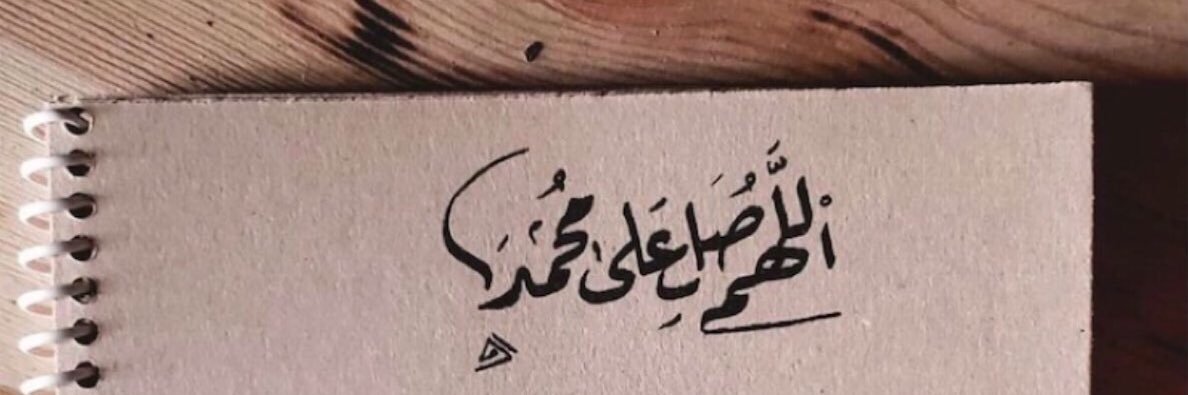 اللَّهُم صَلِ عَلىٰ مُحَمَد